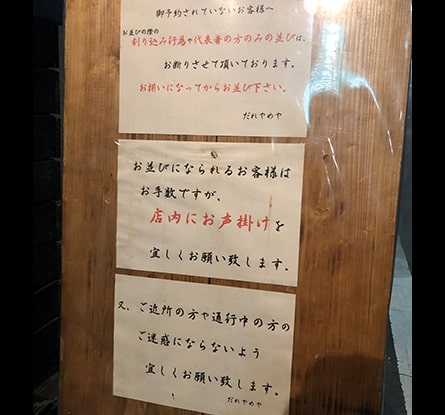 御予約されていないお客様へ
お並びの際の
割り込み行為や代表者の方のみの並びは、
お断りさせて頂いております。
お揃いになってからお並び下さい。
だれやめや
お並びになられるお客様は
お手数ですが、
店内にお声掛けを
宜しくお願い致します。
又、ご近所の方や通行中の方の
ご迷惑にならないよう
宜しくお願い致します。
だれやめや